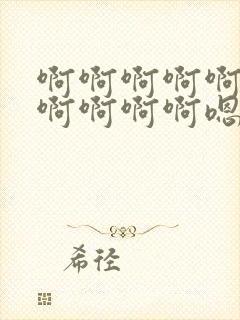 啊啊啊啊啊
啊啊啊啊嗯
希径